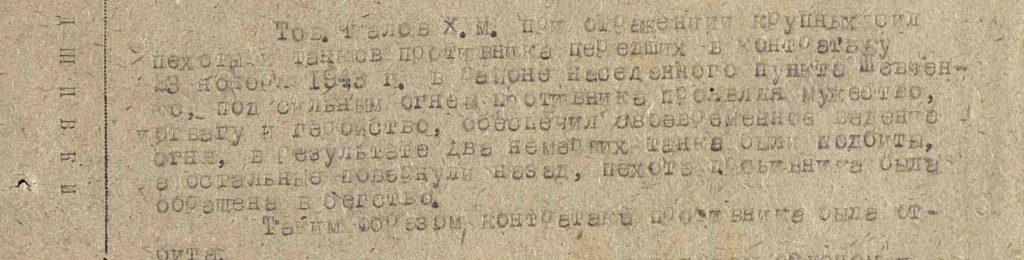 Тов. Чалов Х.М. при отражении крупных сил
пехоты и танков противника перешдших в контратаку
23 ноября 1943 г. в районе населенного пункта Шевчен-
ко, под сильным огнем противника проявляя мужество,
отвагу и геройство, обеспечил своевременное ведение
огня, в результате два немецких танка были подбиты,
а остальные повернули назад, пехота противника была
обращена в бегство.
Таким образом контратака противника была от-
бита.